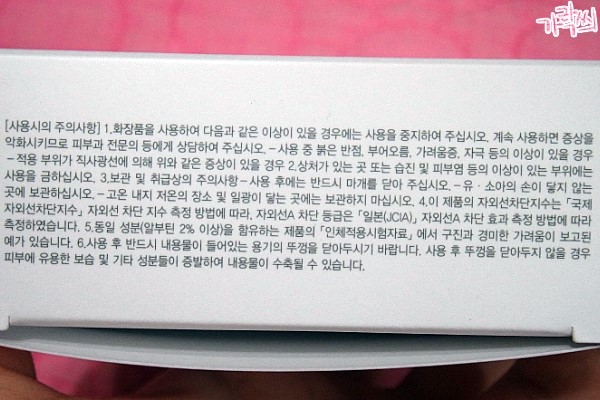 기락씨
[사용시의 주의사항] 1.화장품을 사용하여 다음과 같은 이상이 있을 경우에는 사용을 중지하여 주십시오. 계속 사용하면 증상을
악화시키므로 피부과 전문의 등에게 상담하여 주십시오. – 사용 중 붉은 반점, 부어오름, 가려움증, 자극 등의 이상이 있을 경우
– 적용 부위가 직사광선에 의해 위와 같은 증상이 있을 경우 2.상처가 있는 곳 또는 습진 및 피부염 등의 이상이 있는 부위에는
사용을 금하십시오. 3.보관 및 취급상의 주의사항 – 사용 후에는 반드시 마개를 닫아 주십시오. – 유 · 소아의 손이 닿지 않는
곳에 보관하십시오. – 고온 내지 저온의 장소 및 일광이 닿는 곳에는 보관하지 마십시오. 4.이 제품의 자외선차단지수는 「국제
자외선차단지수」 자외선 차단 지수 측정 방법에 따라, 자외선A 차단 등급은 「일본(JCIA)」 자외선A 차단 효과 측정 방법에 따라
측정하였습니다. 5.동일 성분(알부틴 2% 이상)을 함유하는 제품의 「인체적용시험자료」에서 구진과 경미한 가려움이 보고된
예가 있습니다. 6.사용 후 반드시 내용물이 들어있는 용기의 뚜껑을 닫아두시기 바랍니다. 사용 후 뚜껑을 닫아두지 않을 경우
피부에 유용한 보습 및 기타 성분들이 증발하여 내용물이 수축될 수 있습니다.